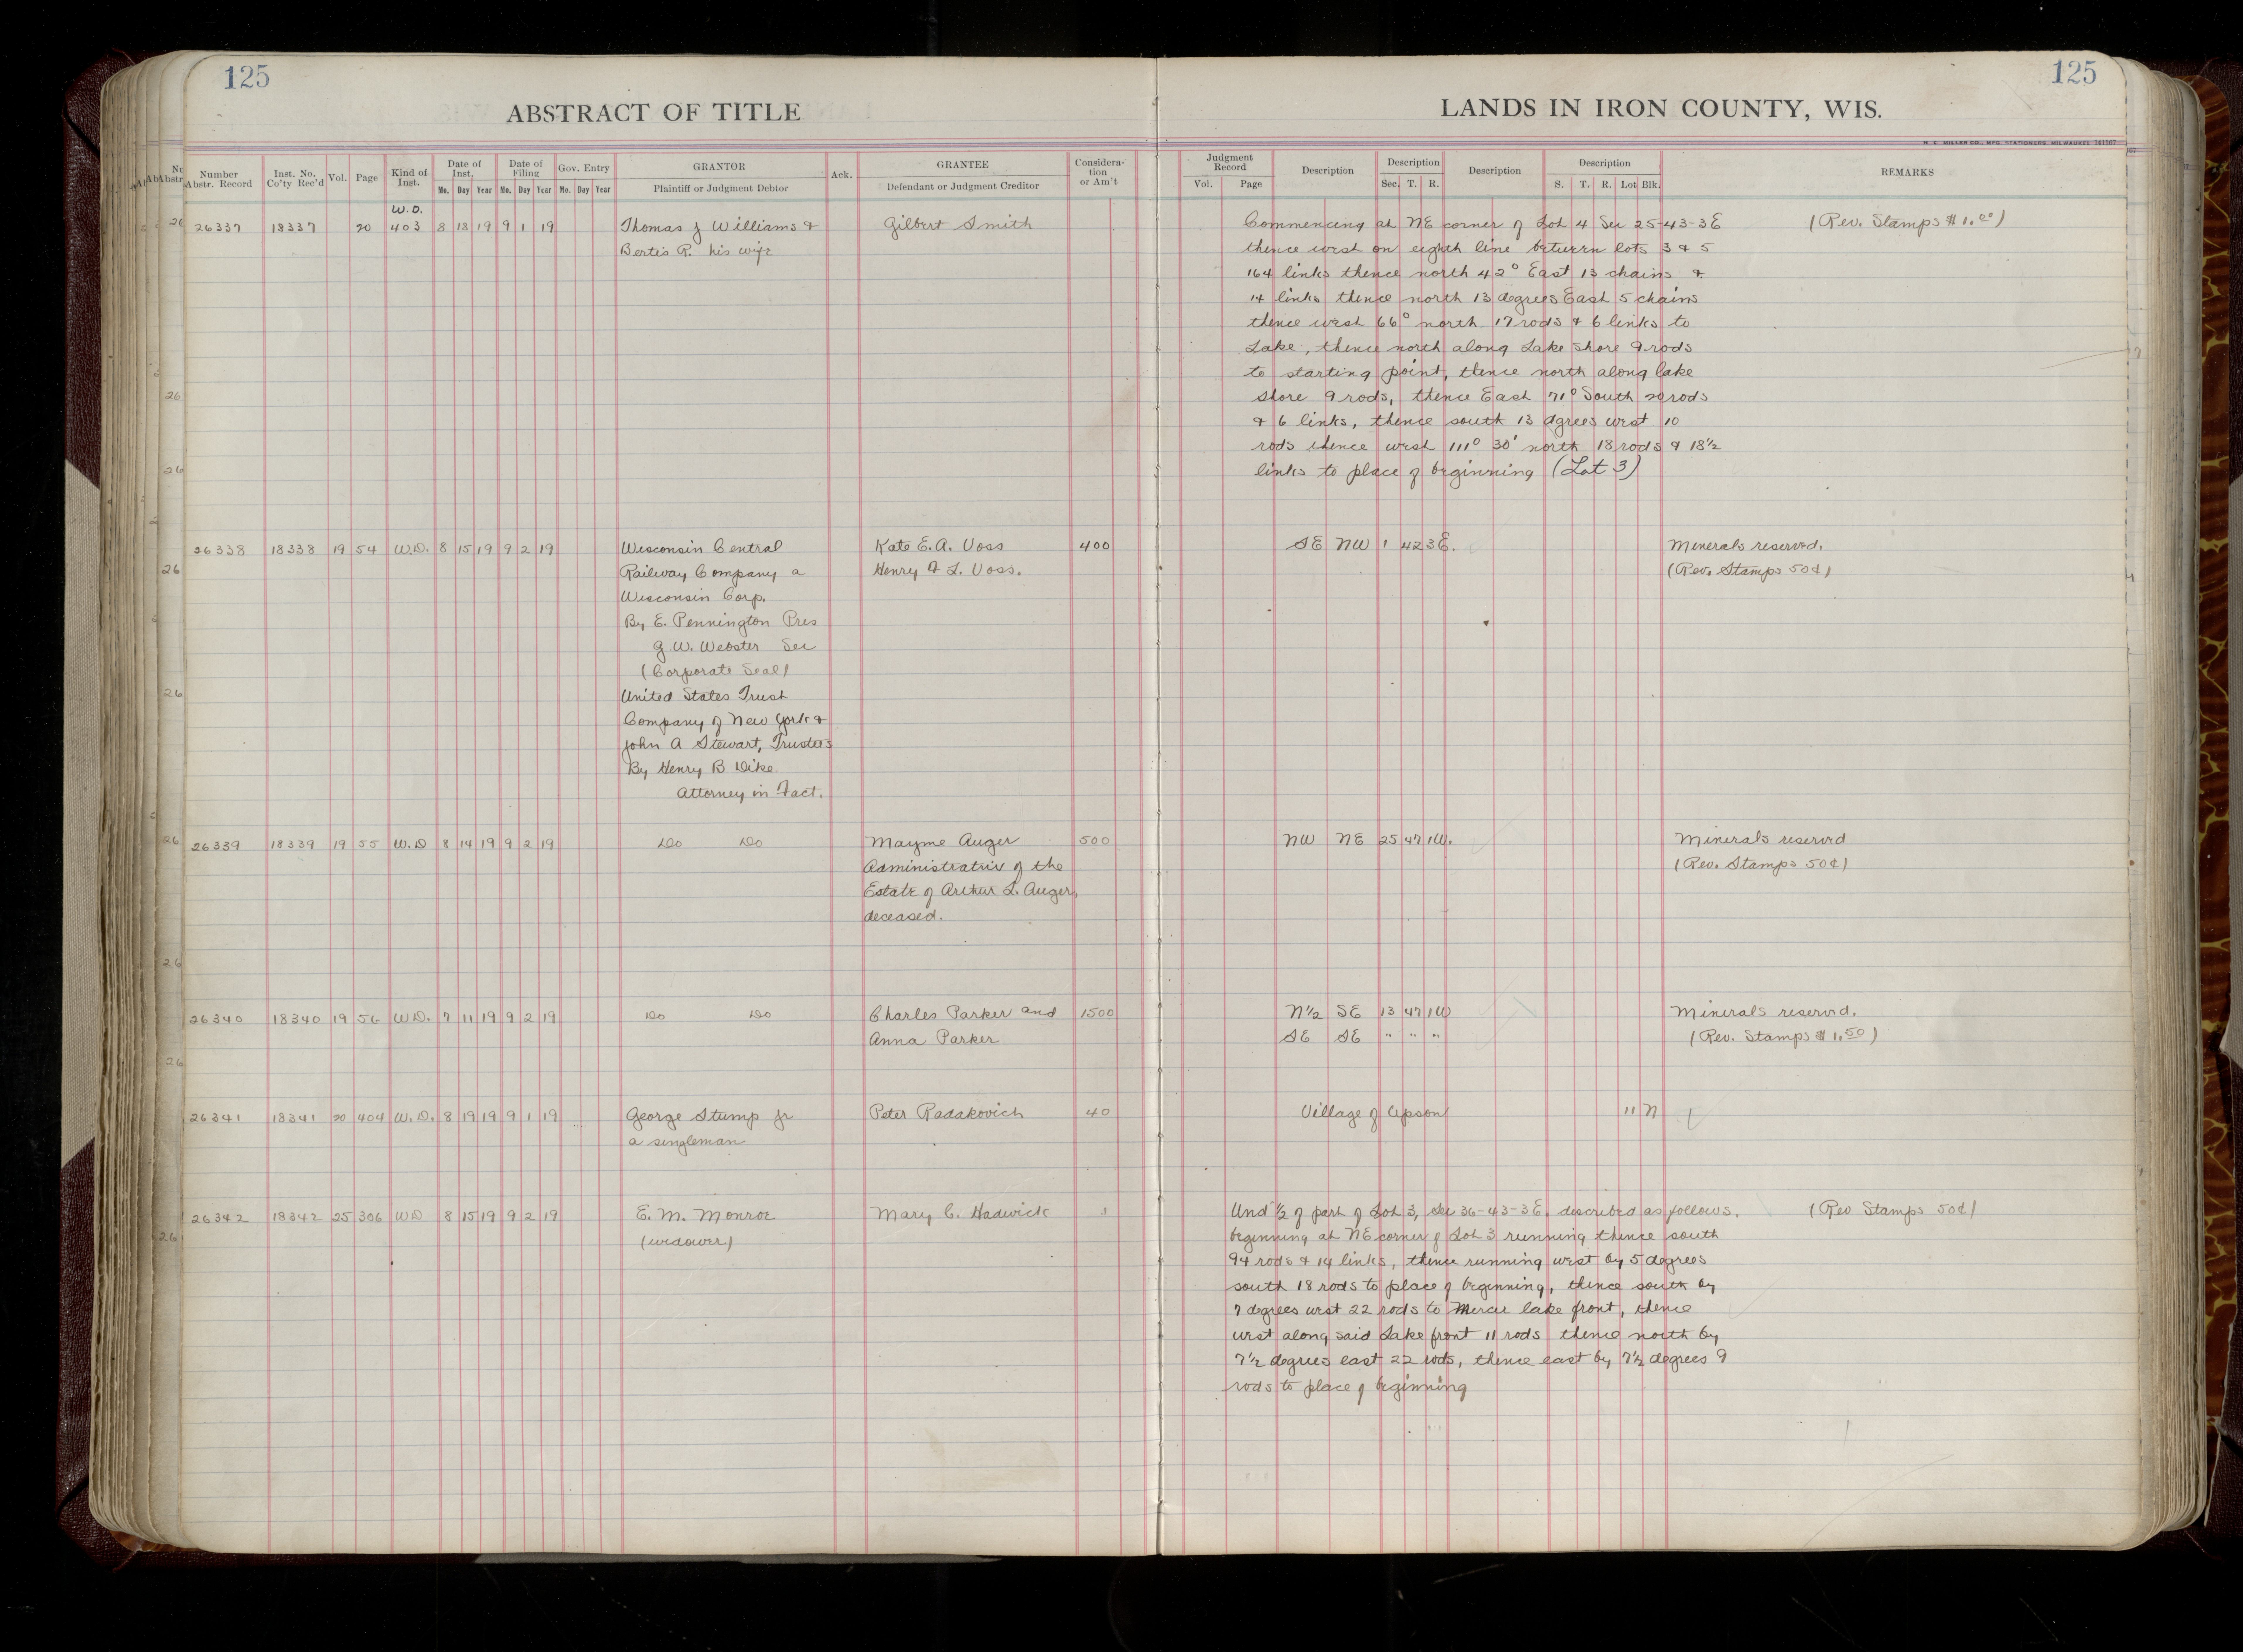 125
ABSTRACT OF TITLE
Number Abstr. Record
Inst. No. Co'ty Rec'd
Vol.
Page
Kind of Inst.
Date of Inst.
Mo. Day Year
Date of Filing
Mo. Day Year
Gov. Entry
Mo. Day Year
GRANTOR
Plaintiff or Judgment Debtor
Ack.
GRANTEE
Defendant or Judgment Creditor
Considera-
tion
or Am't
W.D.
26337 18337 20 403 8 18 19 9 1 19 Thomas J Williams & Gilbert Smith
Bertis R. his wife
26338 18338 19 54 W.D. 8 15 19 9 2 19 Wisconsin Central Kate E.A. Voss 400
Railway Company a Henry F L. Voss.
Wisconsin Corp.
By E. Pennington Pres
G.W. Webster Sec
(Corporate Seal)
United States Trust
Company of New York &
John A Stewart, Trustees
By Henry B Dike
Attorney in Fact.
26339 18339 19 55 W.D 8 14 19 9 2 19 Do Do Mayme Auger 500
Administratrix of the
Estate of Arthur L. Auger,
deceased.
26340 18340 19 56 W.D. 7 11 19 9 2 19 Do Do Charles Parker and 1500
Anna Parker
26341 18341 20 404 W.D. 8 19 19 9 1 19 George Stump Jr Peter Radakovich 40
a singleman
26342 18342 25 306 WD 8 15 19 9 2 19 E. M. Monroe Mary C. Hadwick 1
(widower)
125
LANDS IN IRON COUNTY, WIS.
H. C. MILLER CO., MFG. STATIONERS, MILWAUKEE
Judgment Record
Vol. Page
Description
Description
Sec. T. R.
Description
Description
S. T. R. Lot Blk.
REMARKS
Commencing at NE corner of Lot 4 Sec 25-43-3E (Rev. Stamps $1.00)
thence west on eighth line between lots 3 & 5
164 links thence north 42° East 13 chains &
14 links thence north 13 degrees East 5 chains
thence west 66° north 17 rods & 6 links to
Lake, thence north along Lake shore 9 rods
to starting point, thence north along lake
shore 9 rods, thence East 71° South 20 rods
& 6 links, thence south 13 dgrees west 10
rods thence west 111° 30' north 18 rods & 18½
links to place of beginning (Lot 3)
SE NW 1 42 3E. Minerals reserved.
(Rev. Stamps 50¢)
NW NE 25 47 1W. Minerals reserved
(Rev. Stamps 50¢)
N½ SE 13 47 1W Minerals reserved.
SE SE " " " (Rev. Stamps $1.50)
Village of Upson 11 N
Und ½ of part of Lot 3, Sec 36-43-3E. described as follows. (Rev Stamps 50¢)
beginning at NE corner of Lot 3 running thence south
94 rods & 14 links, thence running west by 5 degrees
south 18 rods to place of beginning, thence south by
7 degrees west 22 rods to lake front, thence
west along said Lake front 11 rods thence north by
7½ degrees east 22 rods, thence east by 7½ degrees 9
rods to place of beginning